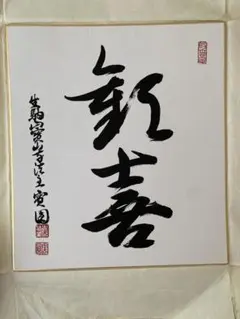 歓喜
生駒寳山寺法主寳圓